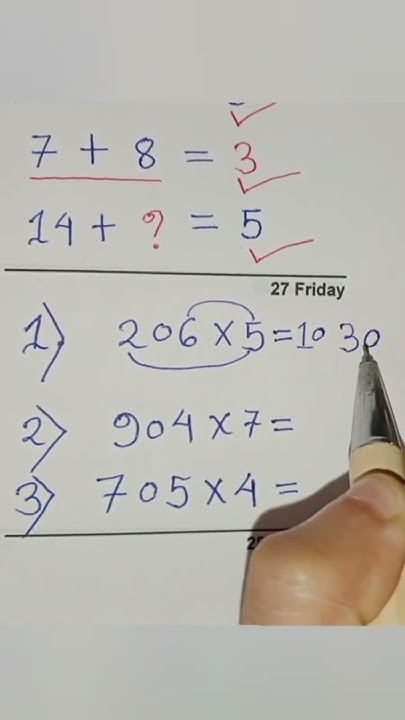 7 + 8 = 3
14 + ? = 5
27 Friday
1) 206 × 5 = 1030
2) 904 × 7 =
3) 705 × 4 =